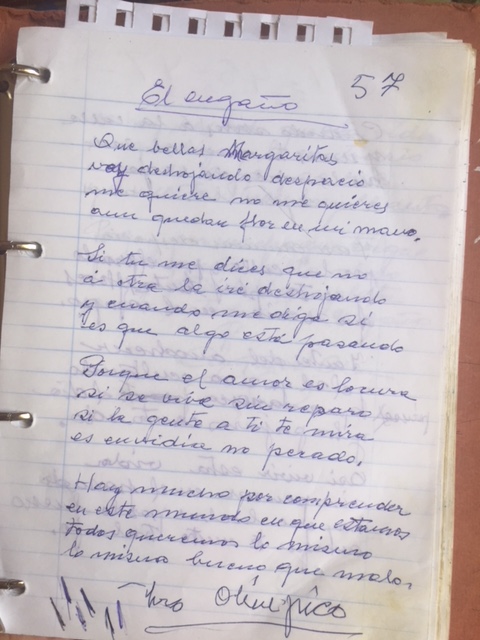 57
El engaño
Que bellas Margaritas
voy deshojando despacio
me quiere no me quieres
aun quedan flor en mi mano.
Si tu me dices que no
á otra la iré deshojando
y cuando me diga si
es que algo está pasando
Porque el amor es locura
si se vive sin reparo
si la gente a ti te mira
es envidia no pecado.
Hay mucho por comprender
en este mundo en que estamos
todos queremos lo mismo
lo mismo bueno que malo.
Olímpico